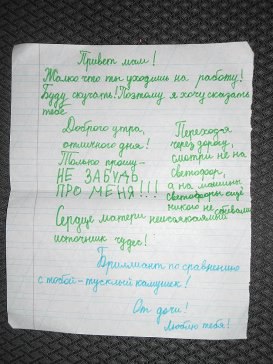 Привет мам!
Жалко что ты уходишь на работу!
Буду скучать! Поэтому я хочу сказать
тебе
Доброго утра,
отличного дня!
Только прошу-
НЕ ЗАБУДЬ
ПРО МЕНЯ!!!
Переходя
через дорогу,
смотри не на
светофор,
а на машины
светофоры ещё
никого не сбивали
Сердце матери неиссякаемый
источник чудес!
Бриллиант по сравнению
с тобой-тусклый камушек!
От дочи!
Люблю тебя!